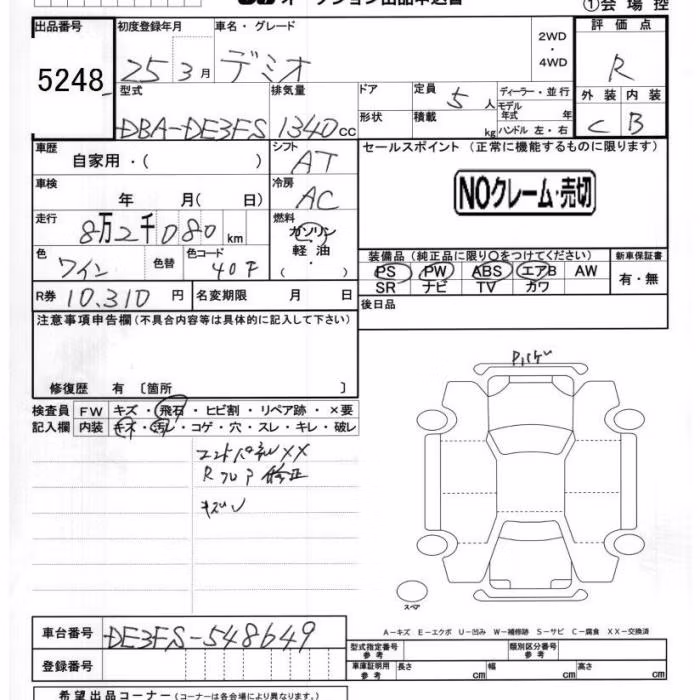 オークション出品申込書
①会場控
出品番号
5248
初度登録年月
25 3月
車名・グレード
デミオ
2WD
・
4WD
評価点
R
型式
DBA-DE3FS
排気量
1340cc
ドア
形状
定員 5人
積載 kg
ディーラー・並行
モデル年式 年
ハンドル 左・右
外装 内装
C B
車歴
自家用・( )
シフト
AT
セールスポイント (正常に機能するものに限ります)
NOクレーム・売切
車検
年 月( 日)
冷房
AC
走行
8万2千080km
燃料
ガソリン
軽油
( ・ )
色
ワイン
色替
色コード
装備品 (純正品に限り〇をつけてください)
PS PW ABS エアB AW
SR ナビ TV カワ
新車保証書
有・無
R券 10,310円
名変期限 月 日
後日品
注意事項申告欄(不具合内容等は具体的に記入して下さい)
修復歴 有 〔箇所 〕
検査員 FW キズ・飛石・ヒビ割・リペア跡・×要
記入欄 内装 キズ・汚レ・コゲ・穴・スレ・キレ・破レ
XX
修正
スペア
A−キズ E−エクボ U−凹み W−補修跡 S−サビ C−腐食 XX−交換済
車台番号
DE3FS-548649
登録番号
型式指定番号 参考
類別区分番号 参考
車庫証明用 参考
長さ cm
幅 cm
高さ cm
希望出品コーナー (コーナーは各会場により異なります。)